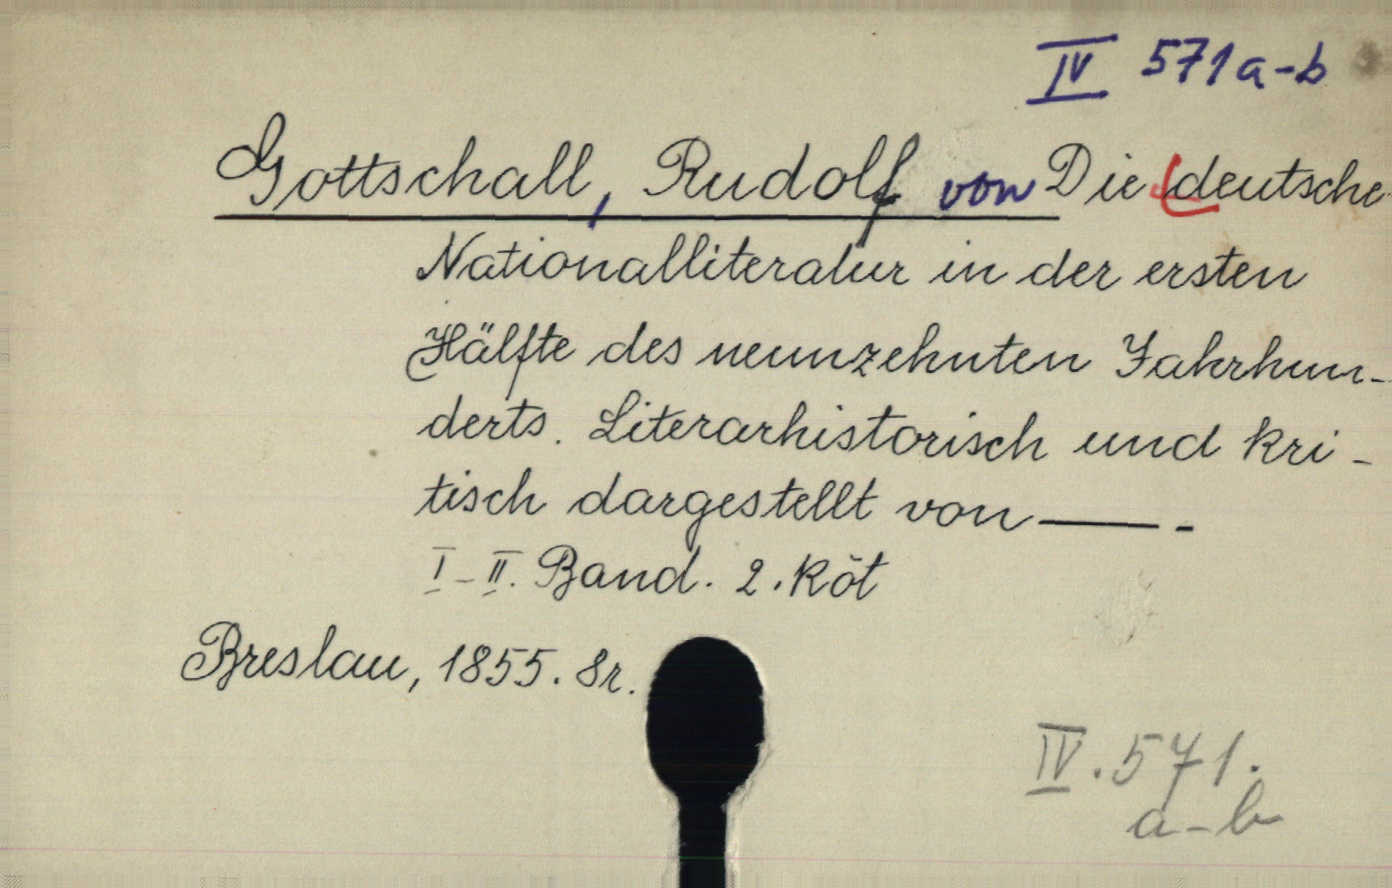 IV 571a-b
Gottschall, Rudolf von Die deutsche
Nationalliteratur in der ersten
Hälfte des neunzehnten Jahrhun-
derts. Literarhistorisch und kri-
tisch dargestellt von ——.-
I-II. Band. 2. köt
Breslau, 1855. 8r.
IV.571.
a-b